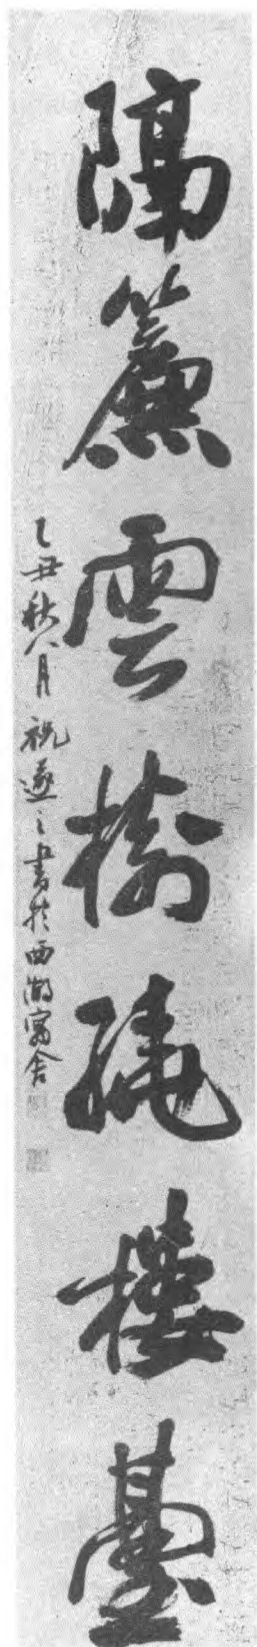 隔簾雲樹繞樓臺
乙丑秋八月祝遂之書於西湖寓舍